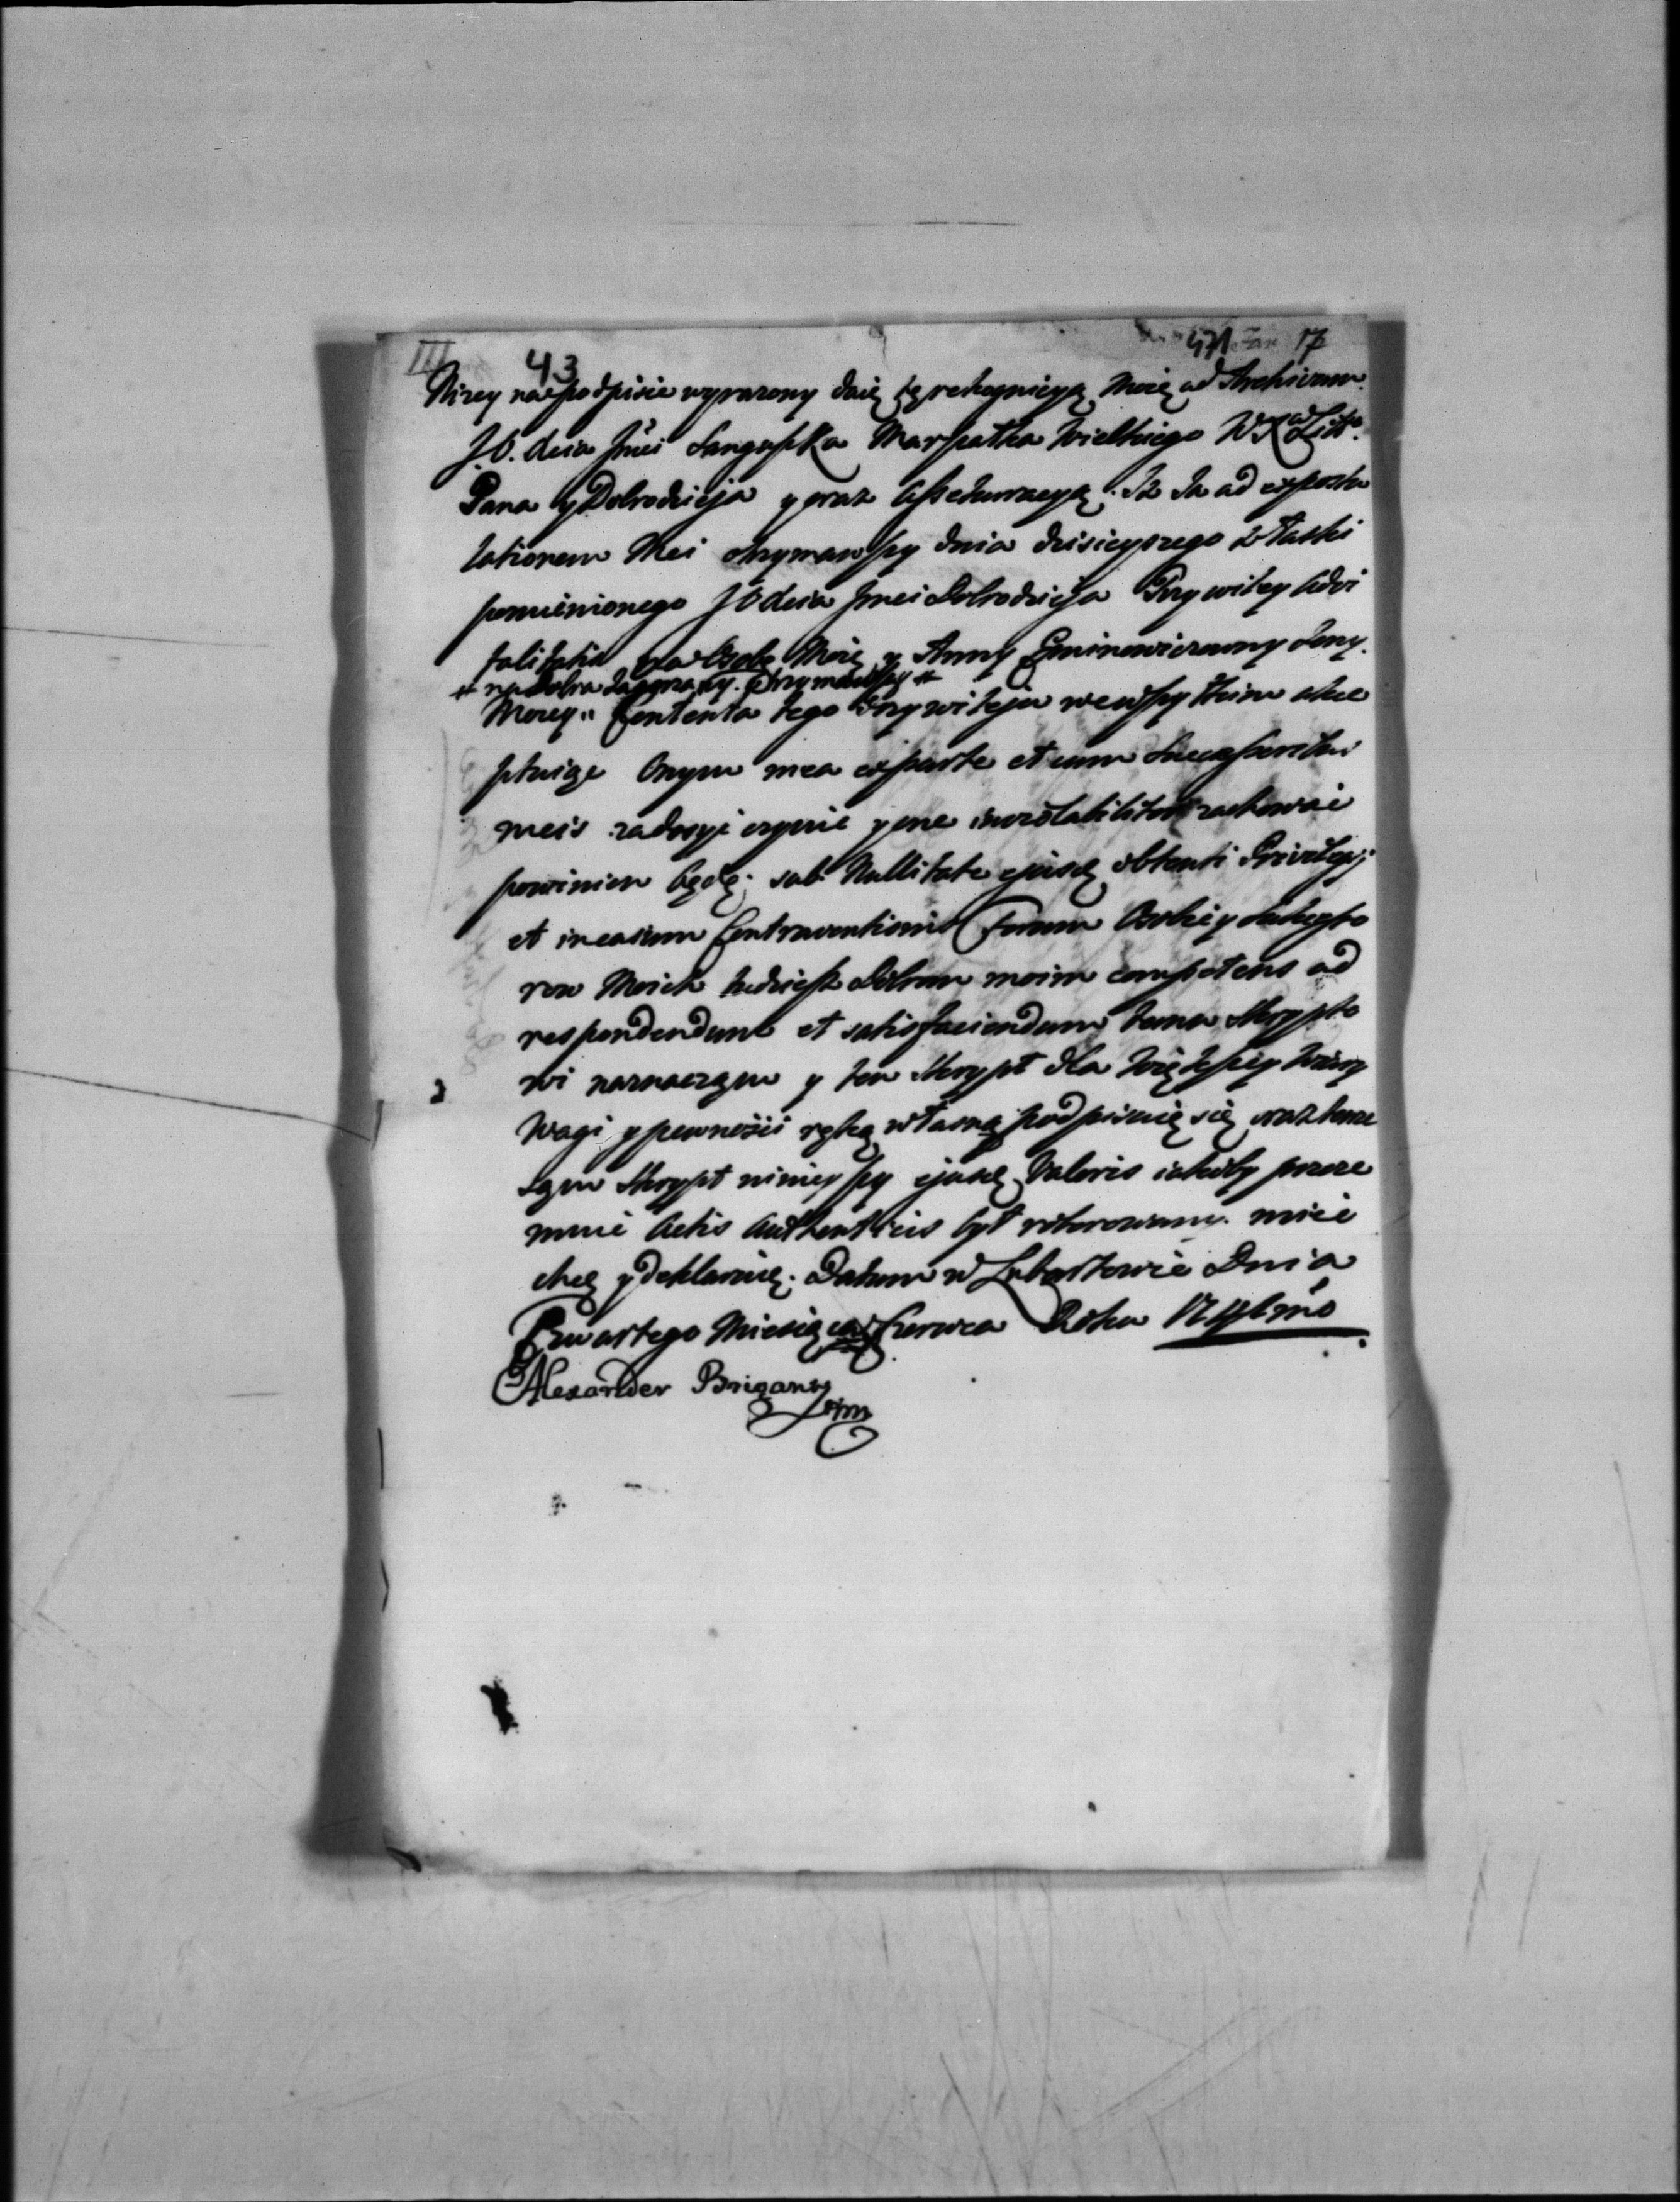 III 43 471 17
Nizey na podpisie wyrazony daię tę rekognicyą Moię ad Archivum
J.O. Xcia Jmci Sanguszka Marszałka Wielkiego W. X. Litt.
Pana y Dobrodzieja y oraz Assekuracyą. Iż Ja ad expostu
lationem Mei otrzymawszy dnia dzisieyszego z łaski
pomienionego JO Xcia Jmci Dobrodzieja Przywiley Advi
talitatis na Osobę Moię y Anny Eminowiczowny Zony
# na Dobra Zagorzany. Otrzymawszy #
Moiey" Contenta tego Przywileju we wszytkim akce
ptuige Onym mea ex parte et cum Successoribus
meis zadosyć czynić y one inviolabiliter zachować
powinien będę; sub Nullitate ejusd obtenti Privilegij
et in casum Contraventionis Forum Osobie y Sukcesso
row Moich tudziesz Dobrom moim competens ad
respondendum et satisfaciendum temu Skrypto
wi naznaczam y ten Skrypt dla Większey Wiary
Wagi y pewności ręką własną podpisuię się oraz
Skrypt ninieyszy ejusd Valoris iakoby przeze
mnie Actis Authenticis był roborowany. mieć
chcę y deklaruię. Datum w Lubartowie Dnia
Czwartego Miesiąca Czerwca Roku
Alexander Briganty
mp